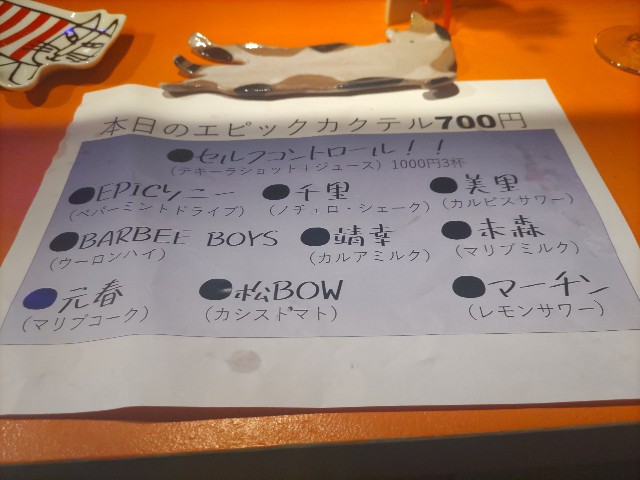 本日のエピックカクテル700円
●セルフコントロール！！
(テキーラショット+ジュース) 1000円3杯
●EPICソニー ●千里 ●美里
(ペパーミントドライブ) (ノヂェロ・シェーク) (カルピスサワー)
●BARBEE BOYS ●靖幸 ●未森
(ウーロンハイ) (カルアミルク) (マリブミルク)
●元春 ●松BOW ●マーチン
(マリブコーク) (カシストマト) (レモンサワー)